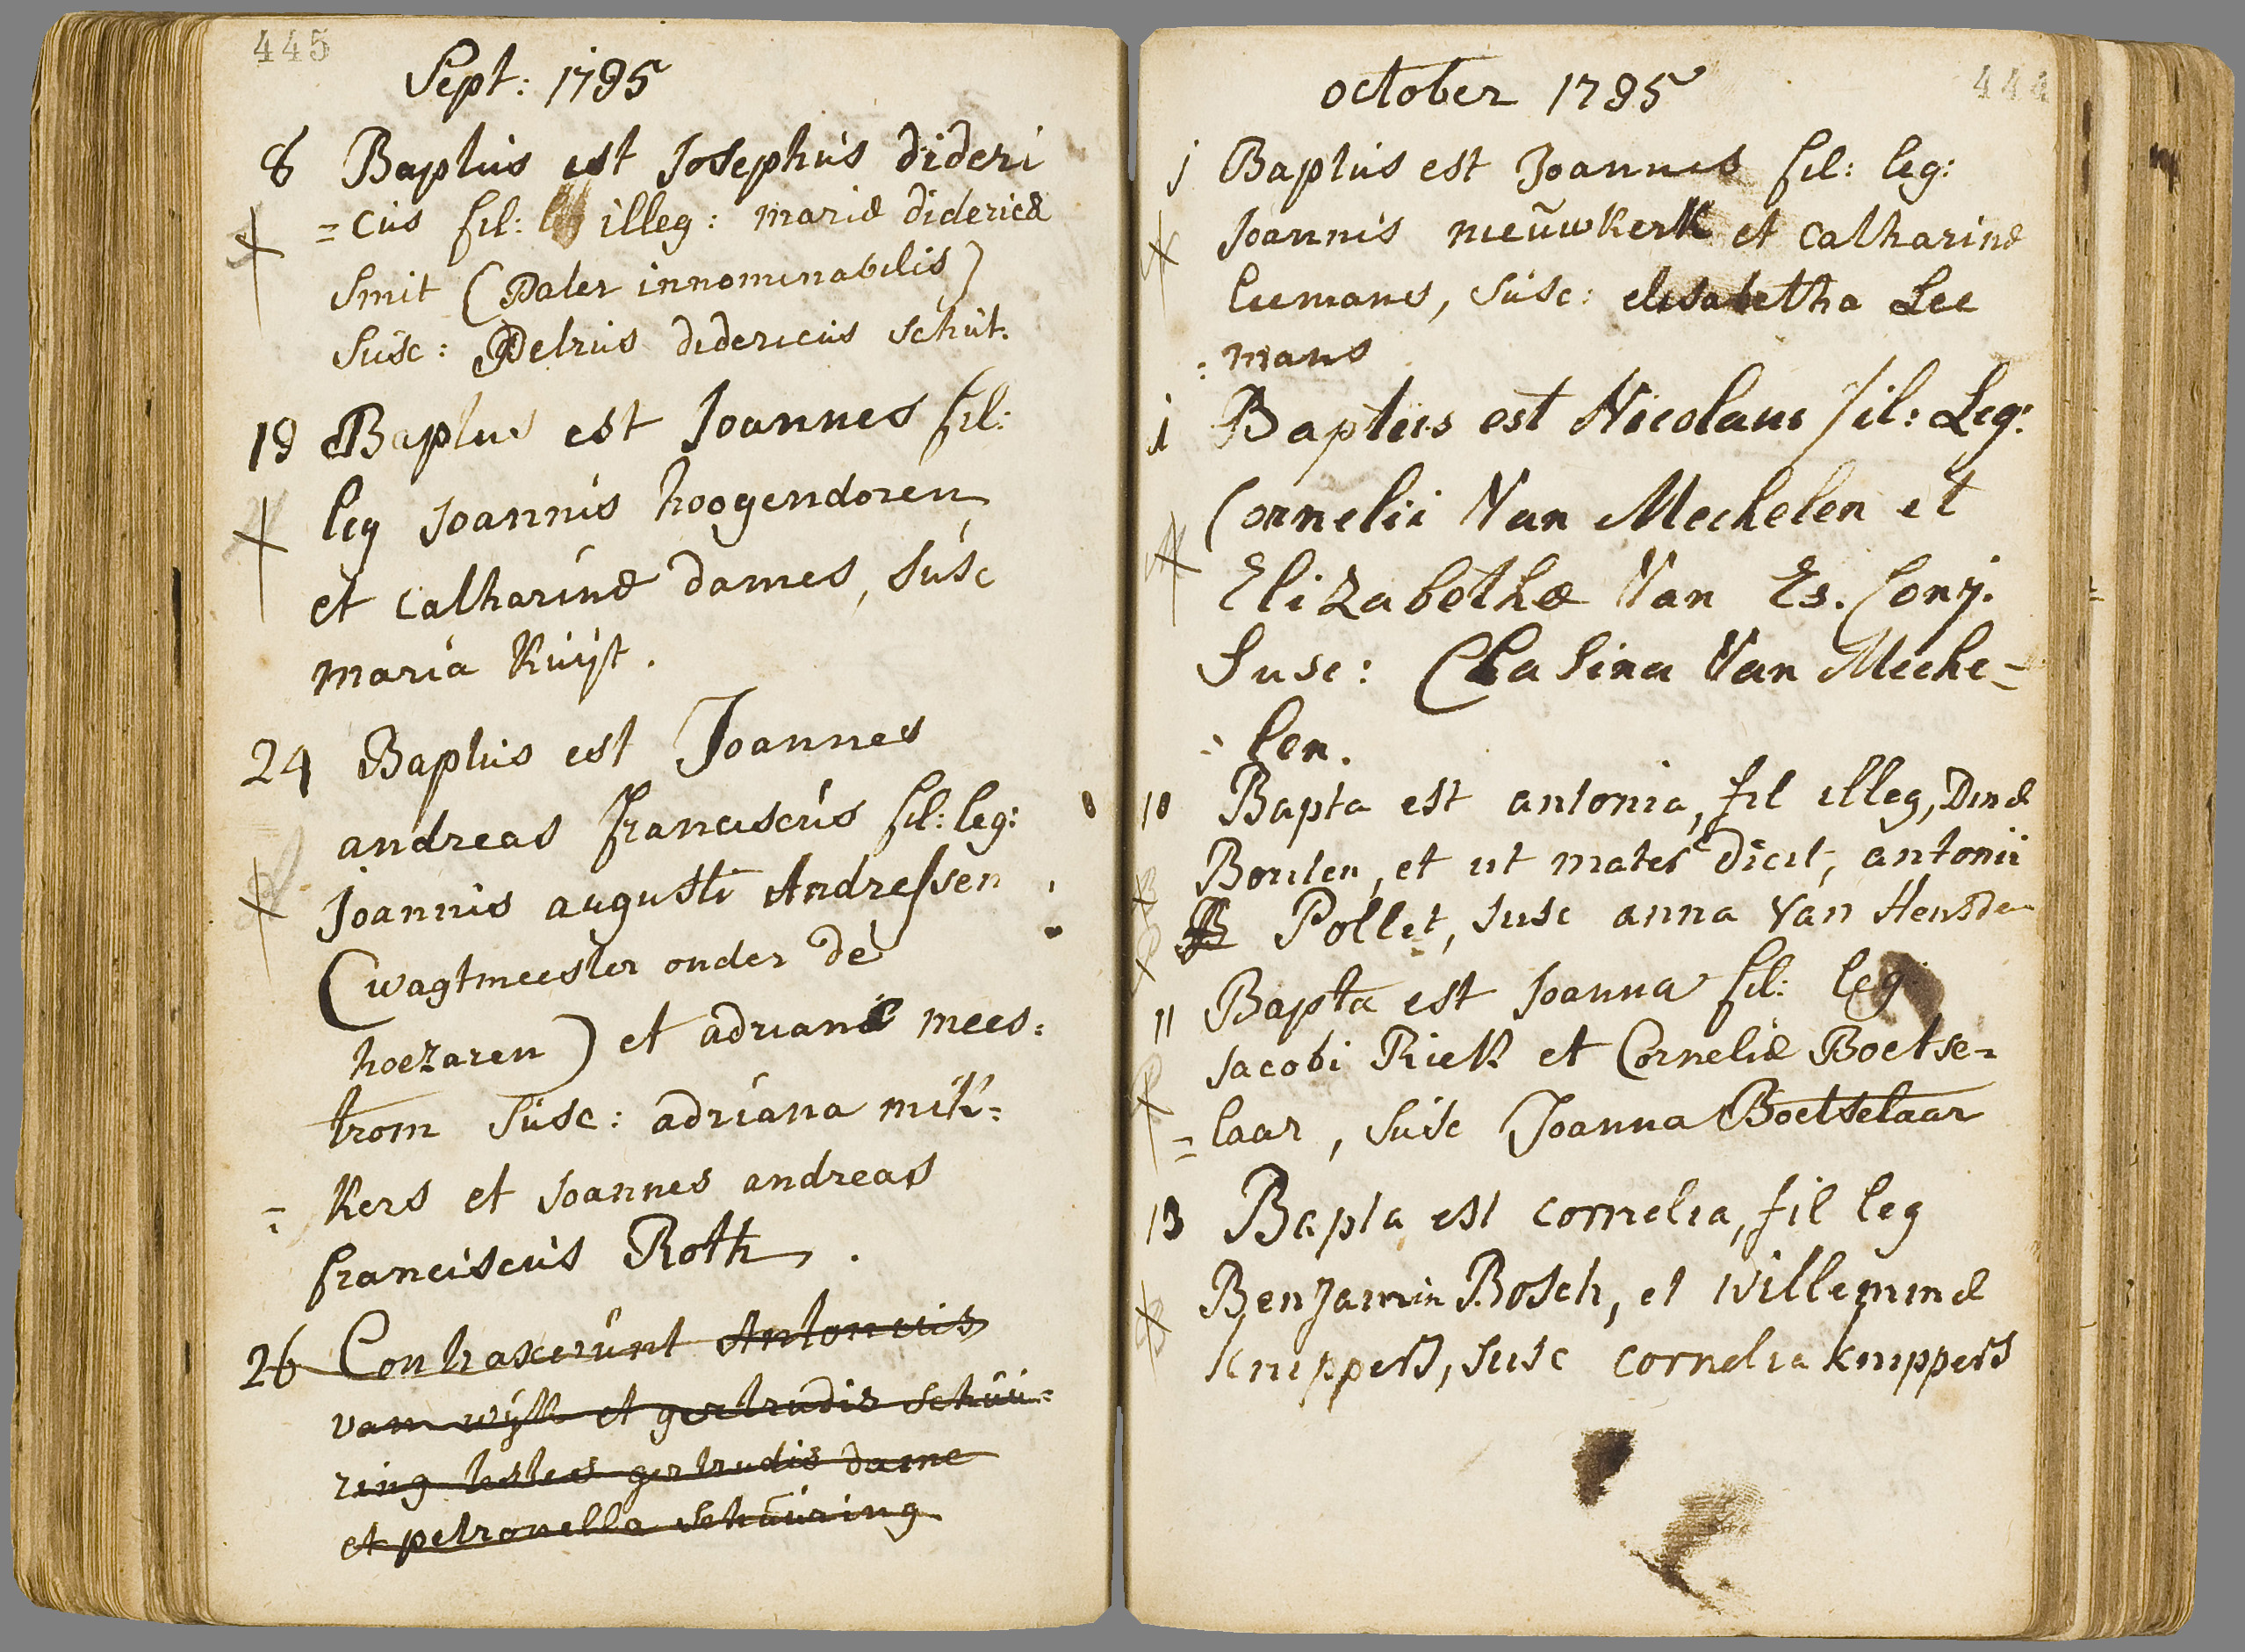 445
Sept: 1795
8 Baptus est Josephus dideri
=cus fil: illeg: mariæ didericæ
Smit (Pater innominabilis)
Susc: Petrus didericus schut.
19 Baptus est Joannes fil:
leg Joannis hoogendoren
et catharinæ dames, susc
maria Kuijt.
24 Baptus est Joannes
andreas franciscus fil: leg:
Joannis augusti Andressen
(wagtmeester onder de
hoezaren) et adrianæ mees:
trom Susc: adriana mik:
=kers et Joannes andreas
franciscus Roth.
26 Contraxerunt Antonius
van wijk et gertrudis schuu=
ring testes gertrudis dame
et petronella schuuring
444
october 1795
j Baptus est Joannes fil: leg:
Joannis nieuwkerk et catharinæ
leemans, susc: elisabetha Lee
:mans
j Baptus est Nicolaus fil: Leg:
Cornelii Van Mechelen et
Elizabethæ Van Es. Conj.
Susc: Clasina Van Meche=
=len.
10 Bapta est antonia, fil illeg, Dinæ
Boulen, et ut mater dicit, antonii
Pollet, susc anna Van Heusden
11 Bapta est Joanna fil: leg:
Jacobi Riek et Corneliæ Boetse=
=laar, susc Joanna Boetselaar
13 Bapta est cornelia, fil leg
Benjamin Bosch, et willeminæ
Knippers, susc cornelia knippers